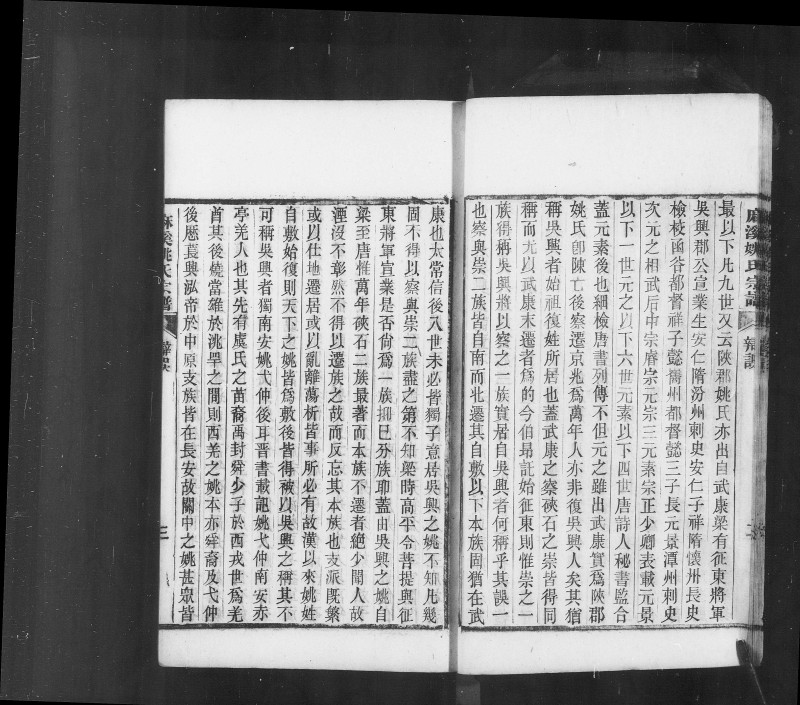 最以下凡九世又云陝郡姚氏亦出自武康梁有征東將軍
吳興郡公宣業生安仁隋汾州刺史安仁子祥隋懷州長史
檢校函谷都督祥子懿巂州都督懿三子長元景潭州刺史
次元之相武后中宗睿宗元宗三元素宗正少卿表載元景
以下一世元之以下六世元素以下四世唐詩人秘書監合
蓋元素後也細檢唐書列傳不但元之雖出武康實爲陝郡
姚氏卽陳亡後察遷京兆爲萬年人亦非復吳興人矣其猶
稱吳興者始祖復姓所居也蓋武康之察硤石之崇皆得同
稱而尤以武康末遷者爲的今伯昻註始征東則惟崇之一
族得稱吳興將以察之一族實居自吳興者何稱乎其誤一
也察與崇二族皆自南而北遷其自敷以下本族固猶在武
康也太常信後八世未必皆獨子意居吳興之姚不知凡幾
固不得以察與崇二族盡之第不知梁時高平令菩提與征
東將軍宣業是否尙爲一族抑已分族耶蓋由吳興之姚自
梁至唐惟萬年硤石二族最著而本族不遷者絶少聞人故
湮沒不彰然不得以遷族之故而反忘其本族也支派旣繁
或以仕地遷居或以亂離蕩析皆事所必有故漢以來姚姓
自敷始復則天下之姚皆爲敷後皆得被以吳興之稱其不
可稱吳興者獨南安姚弋仲後耳晉書載記姚弋仲南安赤
亭羌人也其先有虞氏之苗裔禹封舜少子於西戎世爲羌
酋其後燒當雄於洮罕之間則西羌之姚本亦舜裔及弋仲
後歷萇興泓帝於中原支族皆在長安故關中之姚甚眾皆
麻溪姚氏宗譜 辯誤 二
麻溪姚氏宗譜 辯誤 三